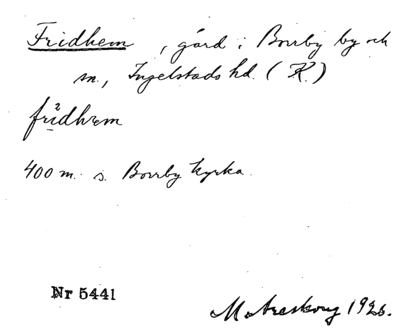 Fridhem, gård i Borrby by och
sn, Ingelstads hd. (K.)
fridhem
400 m. s. Borrby kyrka.
Nr 5441
M Areskoug 1926.